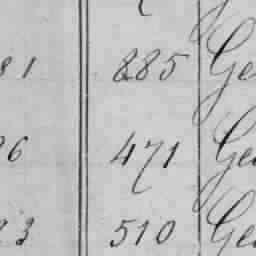 81 885 Ge
26 471 Ge
23 510 Ge